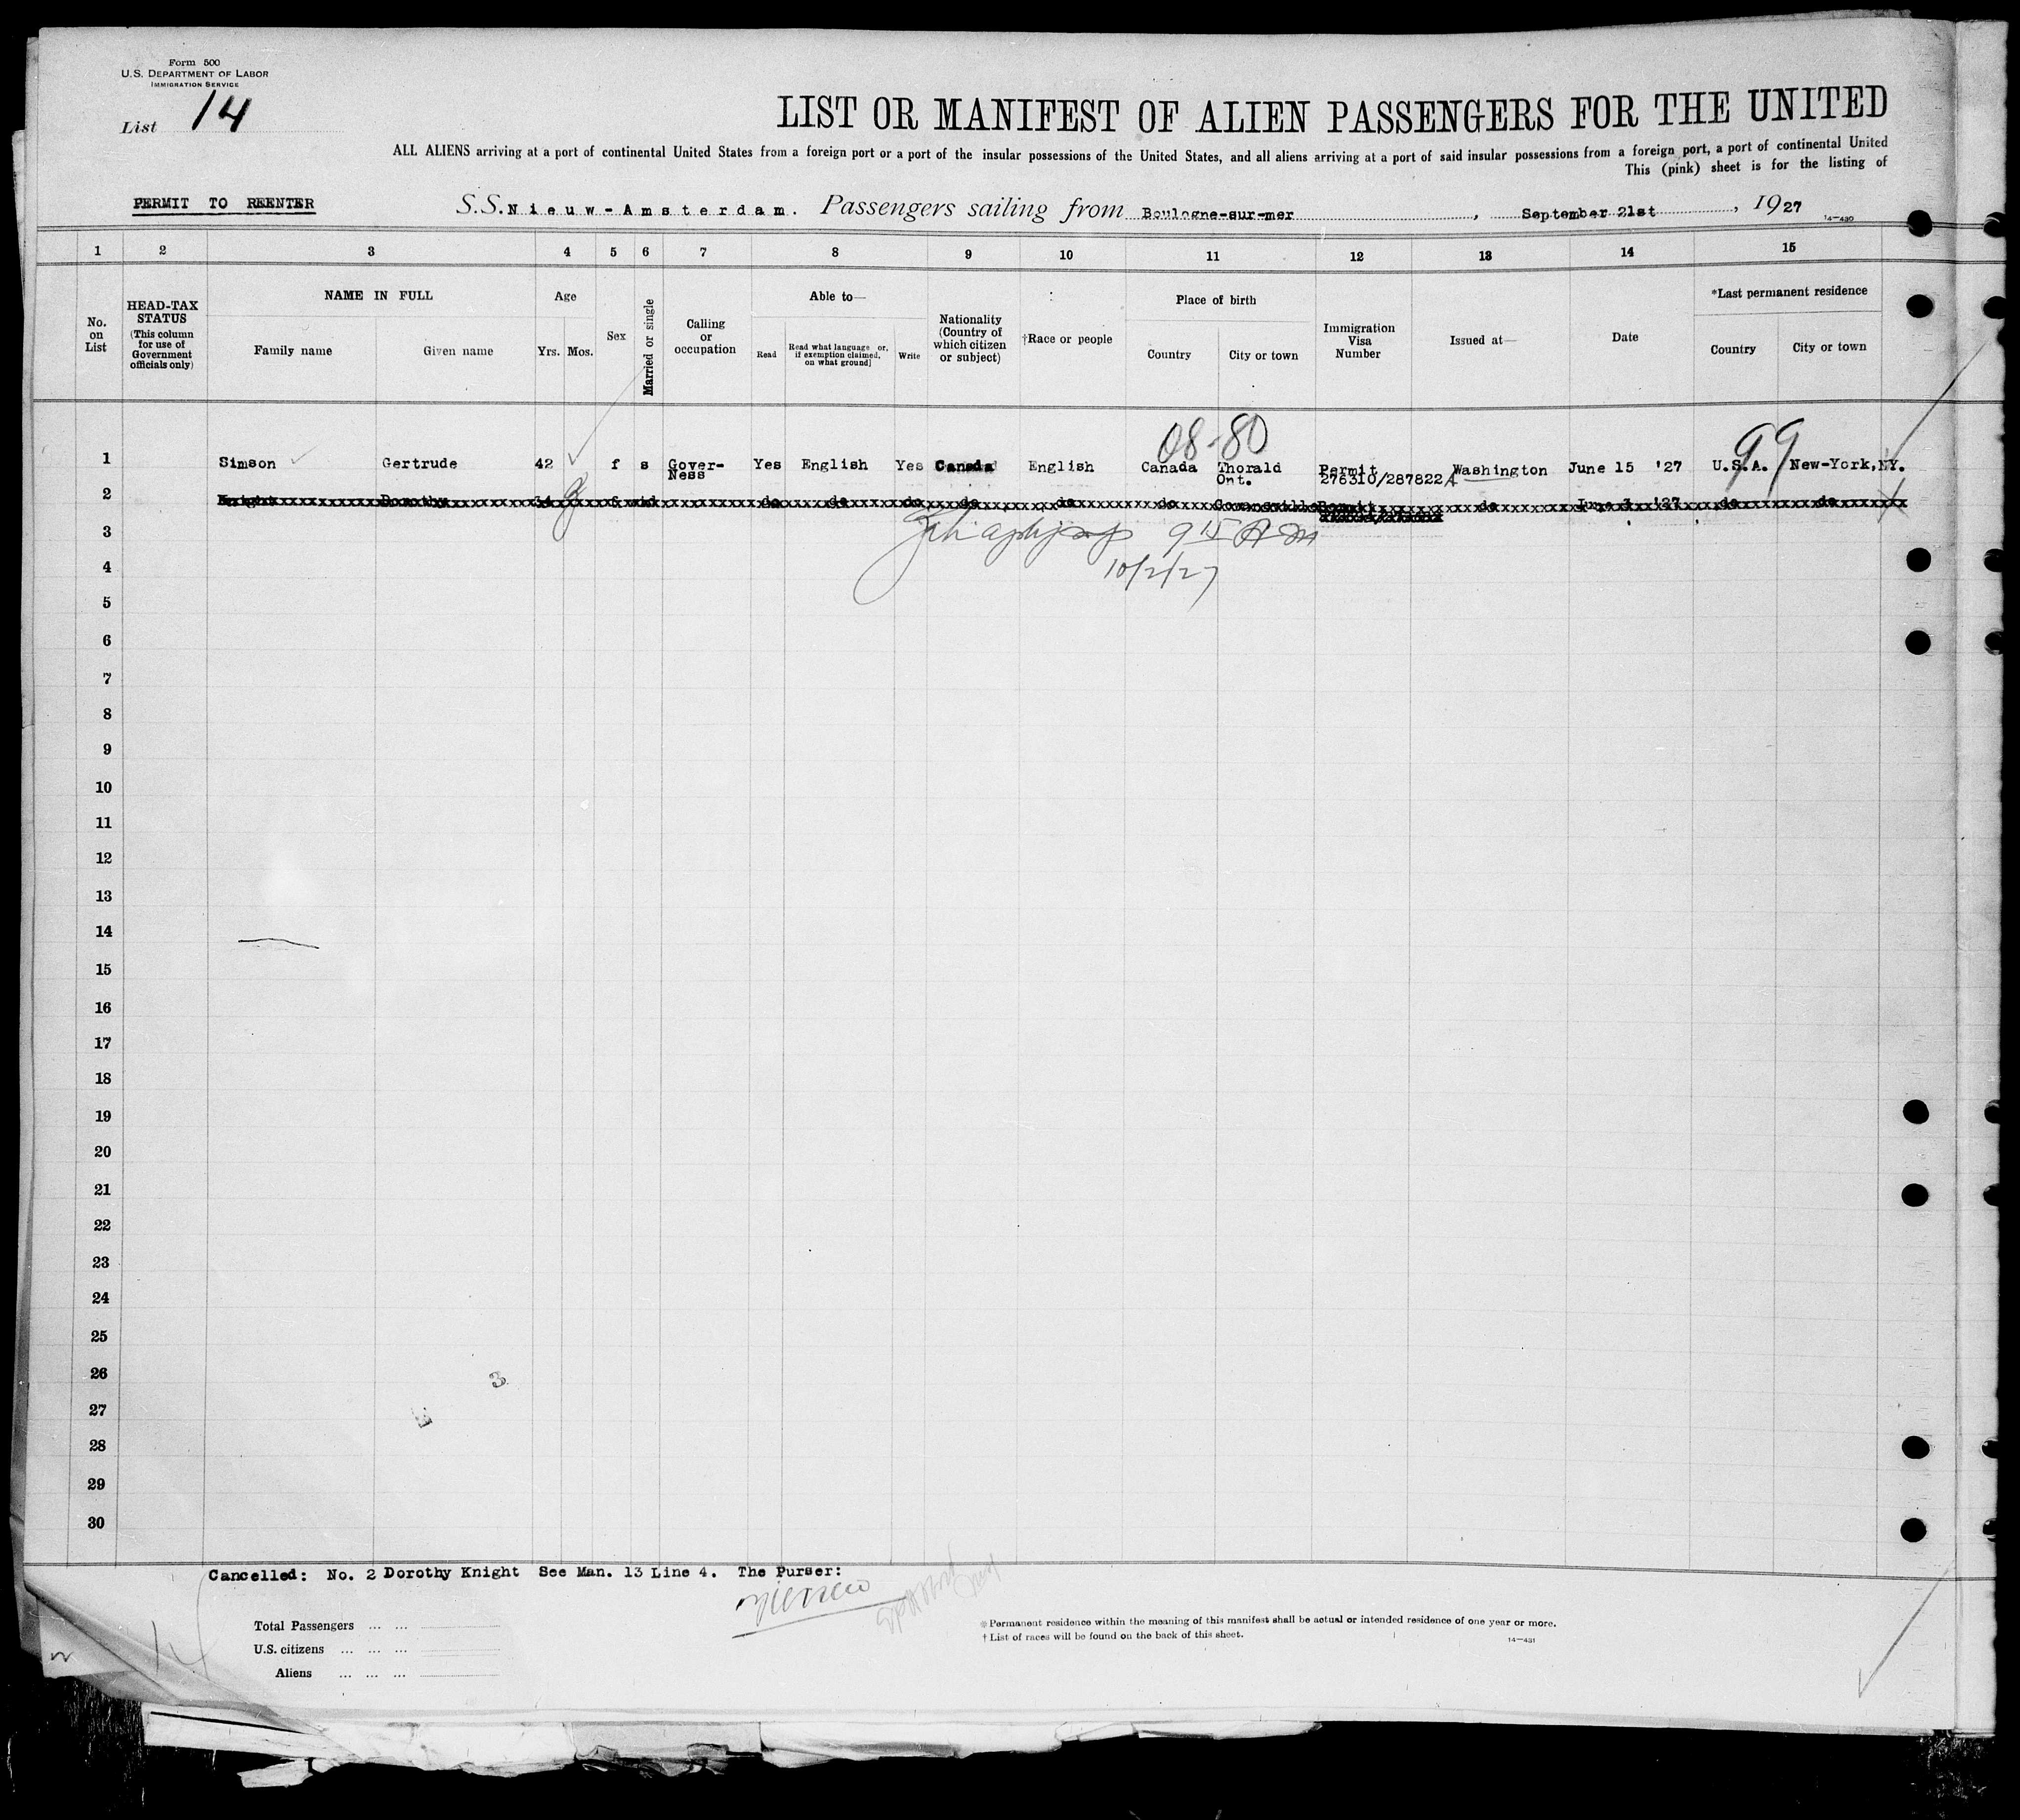 Form 500
U.S. DEPARTMENT OF LABOR
IMMIGRATION SERVICE
List 14
LIST OR MANIFEST OF ALIEN PASSENGERS FOR THE UNITED
ALL ALIENS arriving at a port of continental United States from a foreign port or a port of the insular possessions of the United States, and all aliens arriving at a port of said insular possessions from a foreign port, a port of continental United
This (pink) sheet is for the listing of
PERMIT TO REENTER S.S. Nieuw-Amsterdam. Passengers sailing from Boulogne-sur-mer, September 21st, 1927
14—430
1 2 3 4 5 6 7 8 9 10 11 12 13 14 15
No. on List
HEAD-TAX STATUS (This column for use of Government officials only)
NAME IN FULL
Family name Given name
Age
Yrs. Mos.
Sex
Married or single
Calling or occupation
Able to—
Read
Read what language or, if exemption claimed, on what ground]
Write
Nationality (Country of which citizen or subject)
†Race or people
Place of birth
Country City or town
Immigration Visa Number
Issued at—
Date
*Last permanent residence
Country City or town
08-80 99
1 Simson Gertrude 42 f s Gover-Ness Yes English Yes Canada English Canada Thorald Ont. Permit 276310/287822A Washington June 15 '27 U.S.A. New-York, NY.
2 Knight Dorothy 34 f wd do do do do do do Cowansville Permit do June 3 '27 do do
3 9 15 AM
4 10/2/27
5
6
7
8
9
10
11
12
13
14
15
16
17
18
19
20
21
22
23
24
25
26 3
27
28
29
30
Cancelled: No. 2 Dorothy Knight See Man. 13 Line 4. The Purser:
Total Passengers ... ...
U.S. citizens ... ... ...
Aliens ... ... ...
14
*Permanent residence within the meaning of this manifest shall be actual or intended residence of one year or more.
†List of races will be found on the back of this sheet.
14—431